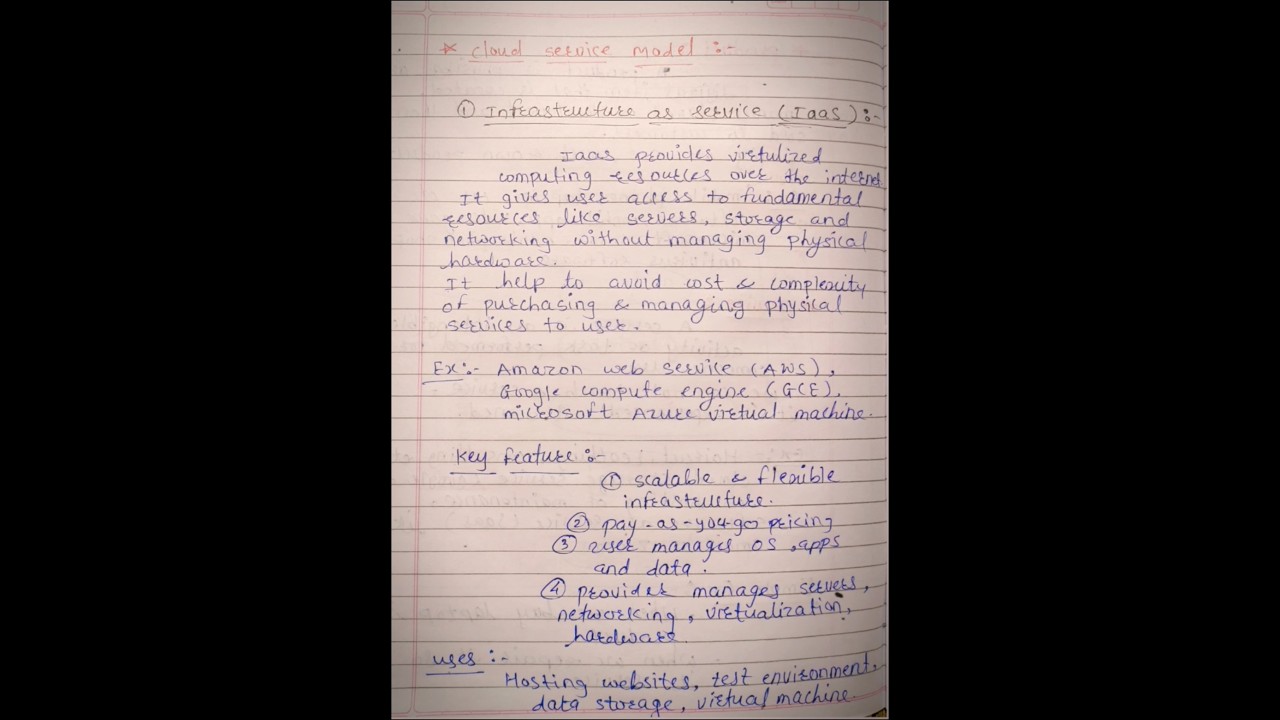 * cloud service model :-
① Infrastructure as service (Iaas) :-
Iaas provides virtulized
computing resources over the internet
It gives user access to fundamental
resources like servers, storage and
networking without managing physical
hardware.
It help to avoid cost & complexity
of purchasing & managing physical
services to user.
Ex:- Amazon web service (AWS),
Google compute engine (GCE),
microsoft Azure virtual machine.
key feature :-
① scalable & flexible
infrastructure.
② pay-as-you-go pricing
③ user manages OS, apps
and data.
④ provider manages servers,
networking, virtualization,
hardware.
uses :-
Hosting websites, test environment,
data storage, virtual machine.